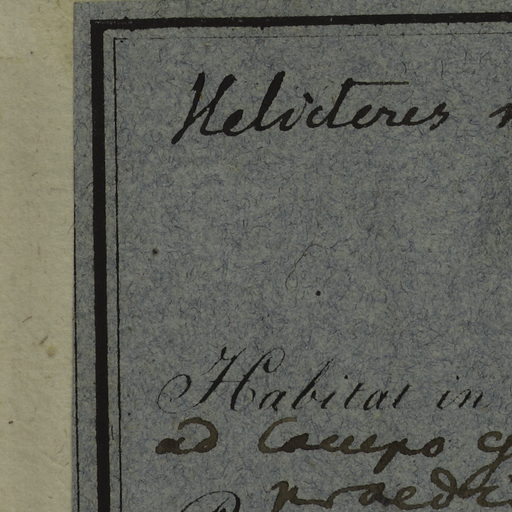 Helicteres
Habitat in
ad Campo
praedi